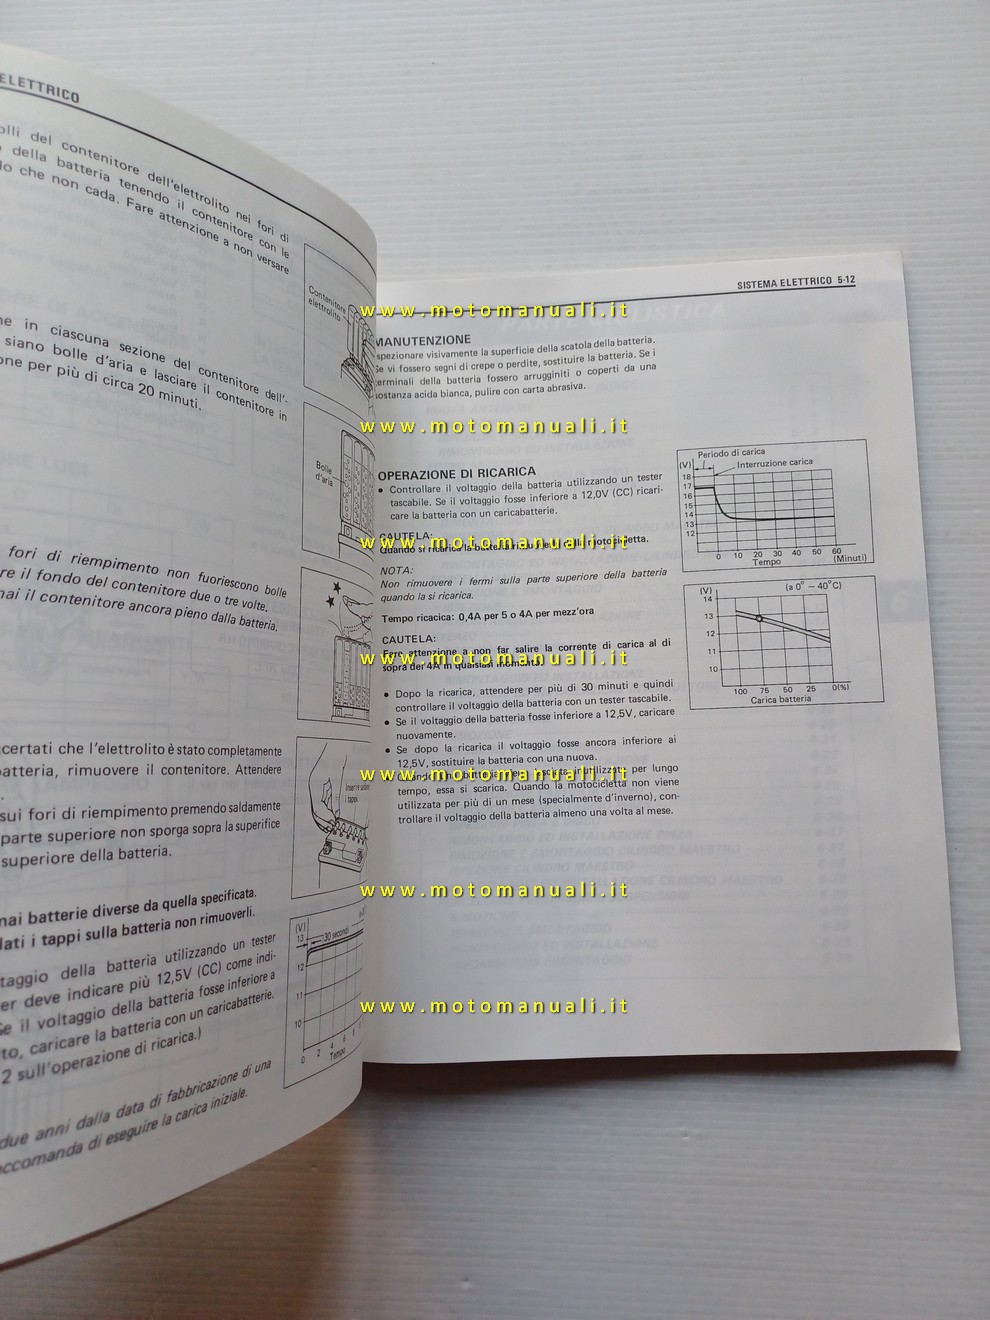 ELETTRICO
olli del contenitore dell'elettrolito nei fori di
della batteria tenendo il contenitore con le
do che non cada. Fare attenzione a non versare
Contenitore
elettrolito
ne in ciascuna sezione del contenitore dell'-
siano bolle d'aria e lasciare il contenitore in
one per più di circa 20 minuti.
Bolle
d'aria
fori di riempimento non fuoriescono bolle
re il fondo del contenitore due o tre volte.
nai il contenitore ancora pieno dalla batteria.
ccertati che l'elettrolito è stato completamente
batteria, rimuovere il contenitore. Attendere
sui fori di riempimento premendo saldamente
parte superiore non sporga sopra la superifice
superiore della batteria.
i tappi.
nai batterie diverse da quella specificata.
lati i tappi sulla batteria non rimuoverli.
ltaggio della batteria utilizzando un tester
er deve indicare più 12,5V (CC) come indi-
Se il voltaggio della batteria fosse inferiore a
to, caricare la batteria con un caricabatterie.
2 sull'operazione di ricarica.)
due anni dalla data di fabbricazione di una
accomanda di eseguire la carica iniziale.
(V)
13
30 secondi
12
11
10
0 2 4 6
Tempo
SISTEMA ELETTRICO 5-12
www.motomanuali.it
MANUTENZIONE
spezionare visivamente la superficie della scatola della batteria.
Se vi fossero segni di crepe o perdite, sostituire la batteria. Se i
terminali della batteria fossero arrugginiti o coperti da una
sostanza acida bianca, pulire con carta abrasiva.
www.motomanuali.it
OPERAZIONE DI RICARICA
● Controllare il voltaggio della batteria utilizzando un tester
tascabile. Se il voltaggio fosse inferiore a 12,0V (CC) ricari-
care la batteria con un caricabatterie.
CAUTELA:
Quando si ricarica la batteria rimuoverla dalla motocicletta.
www.motomanuali.it
NOTA:
Non rimuovere i fermi sulla parte superiore della batteria
quando la si ricarica.
Tempo ricacica: 0,4A per 5 o 4A per mezz'ora
CAUTELA:
Fare attenzione a non far salire la corrente di carica al di
sopra dei 4A in qualsiasi momento.
www.motomanuali.it
● Dopo la ricarica, attendere per più di 30 minuti e quindi
controllare il voltaggio della batteria con un tester tascabile.
● Se il voltaggio della batteria fosse inferiore a 12,5V, caricare
nuovamente.
● Se dopo la ricarica il voltaggio fosse ancora inferiore ai
12,5V, sostituire la batteria con una nuova.
● Quando la batteria viene lasciata inutilizzata per lungo
www.motomanuali.it
tempo, essa si scarica. Quando la motocicletta non viene
utilizzata per più di un mese (specialmente d'inverno), con-
trollare il voltaggio della batteria almeno una volta al mese.
www.motomanuali.it
www.motomanuali.it
Periodo di carica
(V)
Interruzione carica
18
17
16
15
14
13
12
0 10 20 30 40 50 60
Tempo (Minuti)
(V)
(a 0° – 40°C)
14
13
12
11
10
100 75 50 25 0(%)
Carica batteria